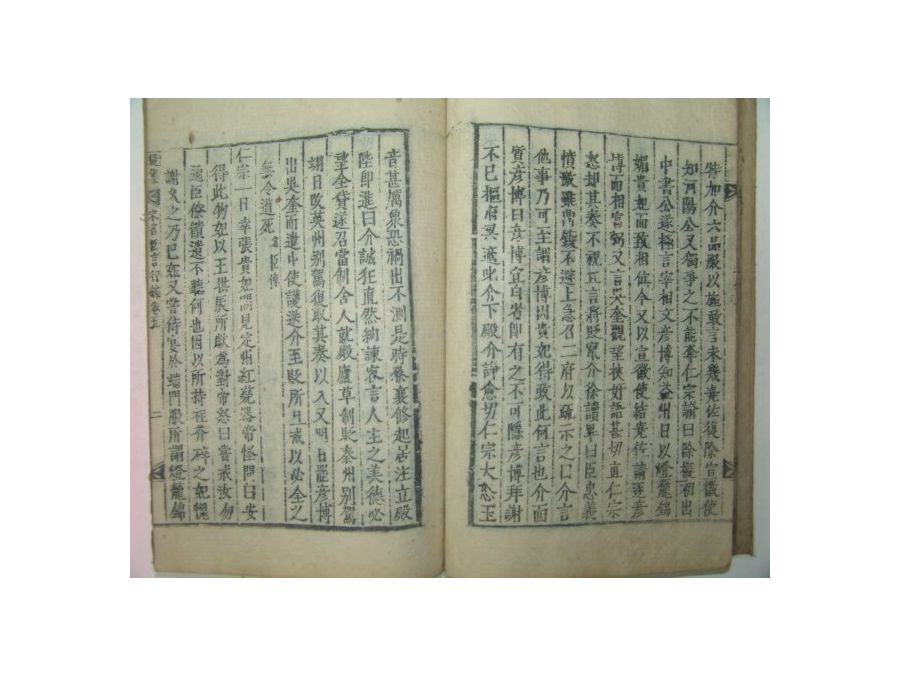 特加介六品服以旌敢言未幾堯佐復除宣徽使
知河陽公又獨爭之不能奪仁宗諭曰除擬初出
中書公遂極言宰相文彦博知益州日以燈籠錦
媚貴妃而致相位今又以宣徽使結堯佐請逐彦
博而相富弼又言吳奎觀望挾奸語甚切直仁宗
怒却其奏不視且言將貶竄介徐讀畢曰臣忠義
憤激雖鼎鑊不避上急召二府以疏示之曰介言
他事乃可至謂彦博因貴妃得政此何言也介面
質彦博曰彦博宜自省即有之不可隱彦博拜謝
不已樞府梁適叱介下殿介諍愈切仁宗大怒玉
音甚厲衆恐禍出不測是時蔡襄修起居注立殿
陛即進曰介誠狂直然納諫容言人主之美德必
望全貸遂召當制舍人就殿廬草制貶春州别駕
翊日改英州别駕復取其奏以入又明日罷彦博
出吳奎而遣中使護送介至貶所且戒以必全之
無令道死 名臣傳
仁宗一日幸張貴妃閤見定州紅甆器帝怪問曰安
得此物妃以王拱辰所獻為對帝怒曰嘗戒汝勿
通臣僚饋遺不聽何也因以所持柱斧碎之妃愧
謝久之乃已妃又嘗侍宴於端門服所謂燈籠錦
宋名臣言行錄卷五
二